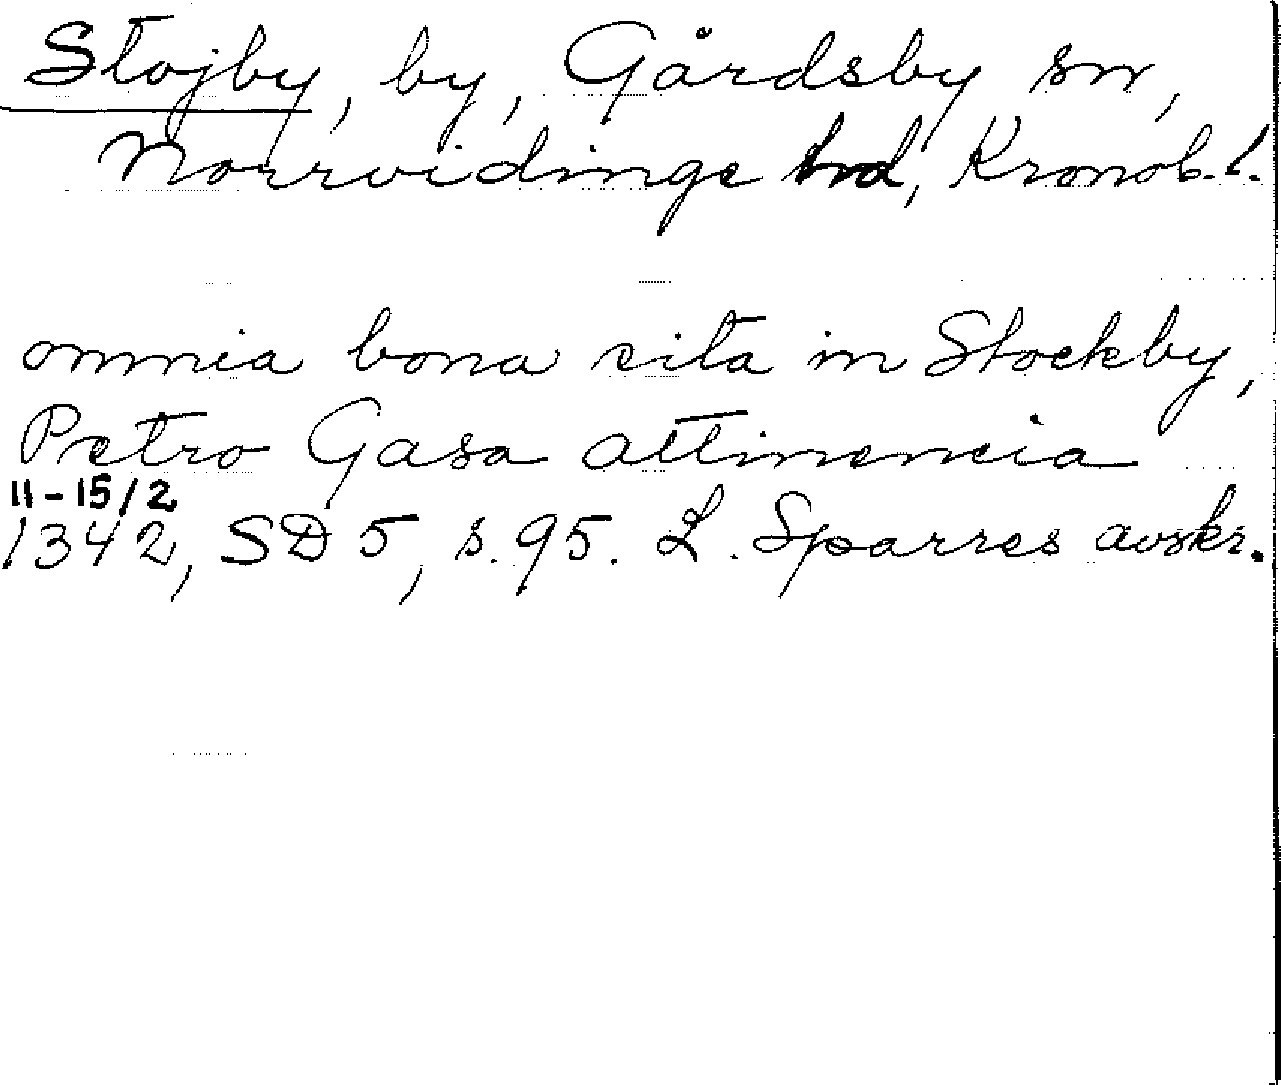 Stojby, by, Gårdsby sn,
Norrvidinge hd, Kronob. l.
omnia bona sita in Stockby,
Petro Gasa attinencia
11-15/2
1342, SD 5, s. 95. L. Sparres avskr.